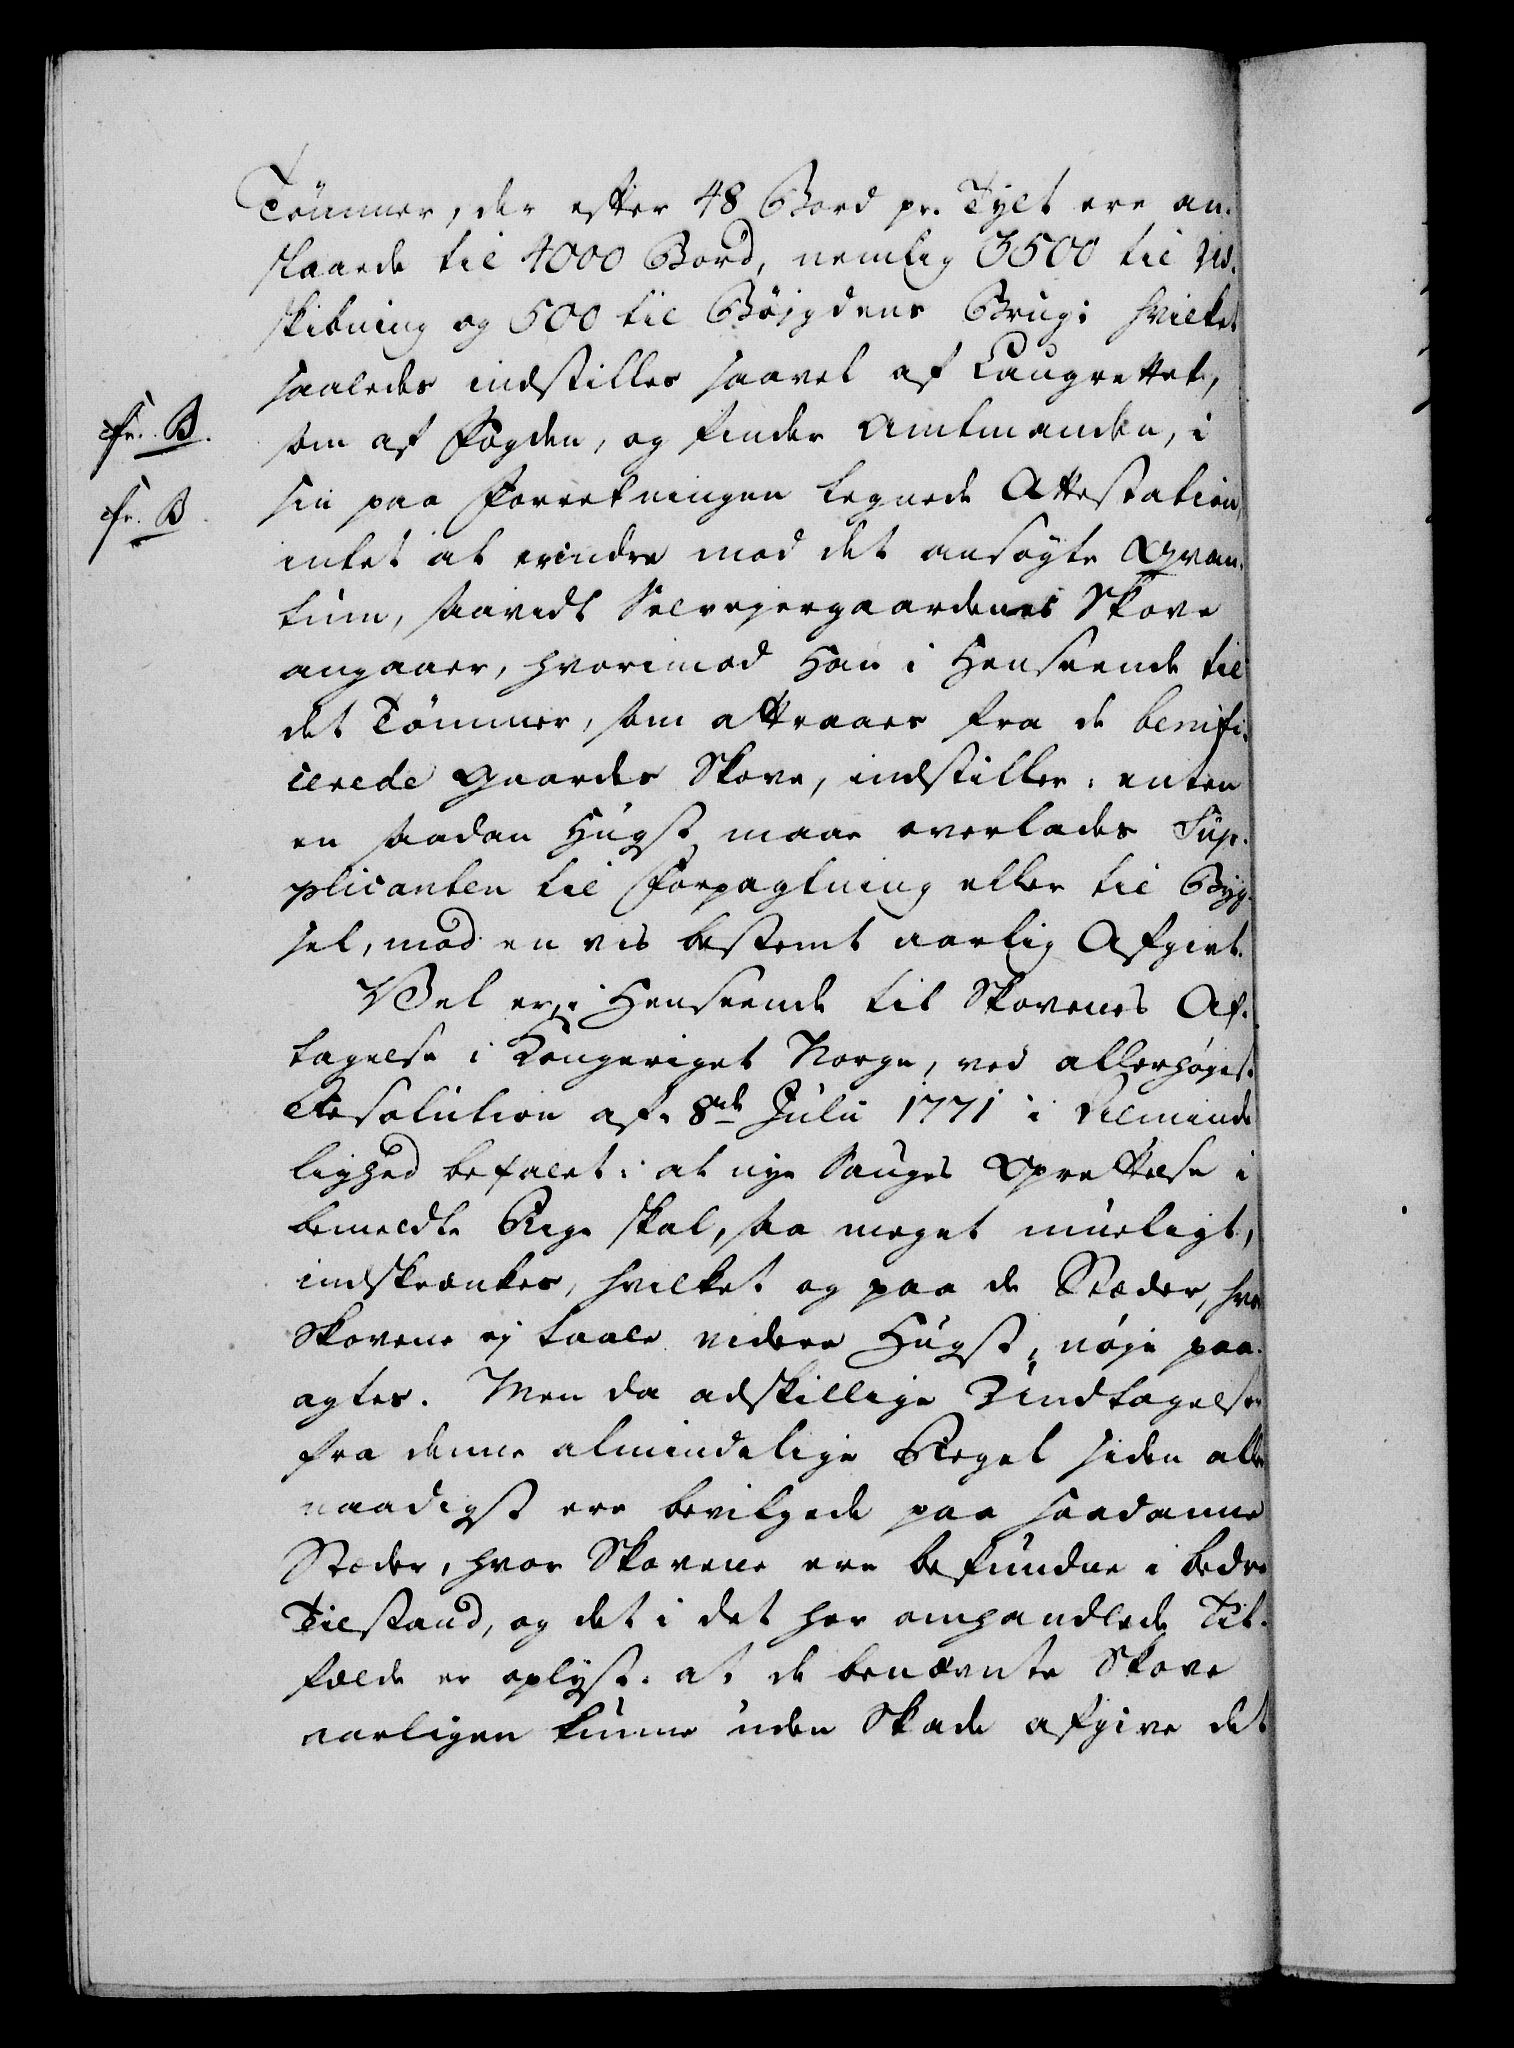 Tömmer, der efter 48 Bord pr. Tylt ere an-
slaaede til 4000 Bord, nemlig 3500 til Ud-
skibning og 500 til Böygdens Brug: hvilket
saaledes indstilles saavel af Laugrettet,
cfr. B.
som af Fogden, og finder Amtmanden, i
cfr. B.
sin paa Forretningen tegnede Attestation,
intet at erindre mod det ansögte Qvan-
tum, saavidt Selvejergaardenes Skove
angaaer, hvorimod Han i Henseende til
det Tömmer, som attraaes fra de benifi-
cerede Gaardes Skove, indstiller: enten
en saadan Hugst maae overlades Sup-
plicanten til Forpagtning eller til Byg-
sel, mod en vis bestemt aarlig Afgivt.
Vel er, i Henseende til Skovenes Af-
tagelse i Kongeriget Norge, ved allerhöjest
Resolution af 8de Julii 1771 i Alminde
lighed befalet: at nye Sauges Oprettelse i
bemeldte Rige skal, saa meget mueligt,
indskrænkes, hvilket og paa de Stæder, hvor
Skovene ej taale videre Hugst, nöje paa-
agtes. Men da adskillige Undtagelser
fra denne almindelige Regel siden aller
naadigst ere bevilgede paa saadanne
Stæder, hvor Skovene ere befundne i bedre
Tilstand, og det i det her omhandlede Til-
fælde er oplyst: at de benævnte Skove
aarligen kunne uden Skade afgive det